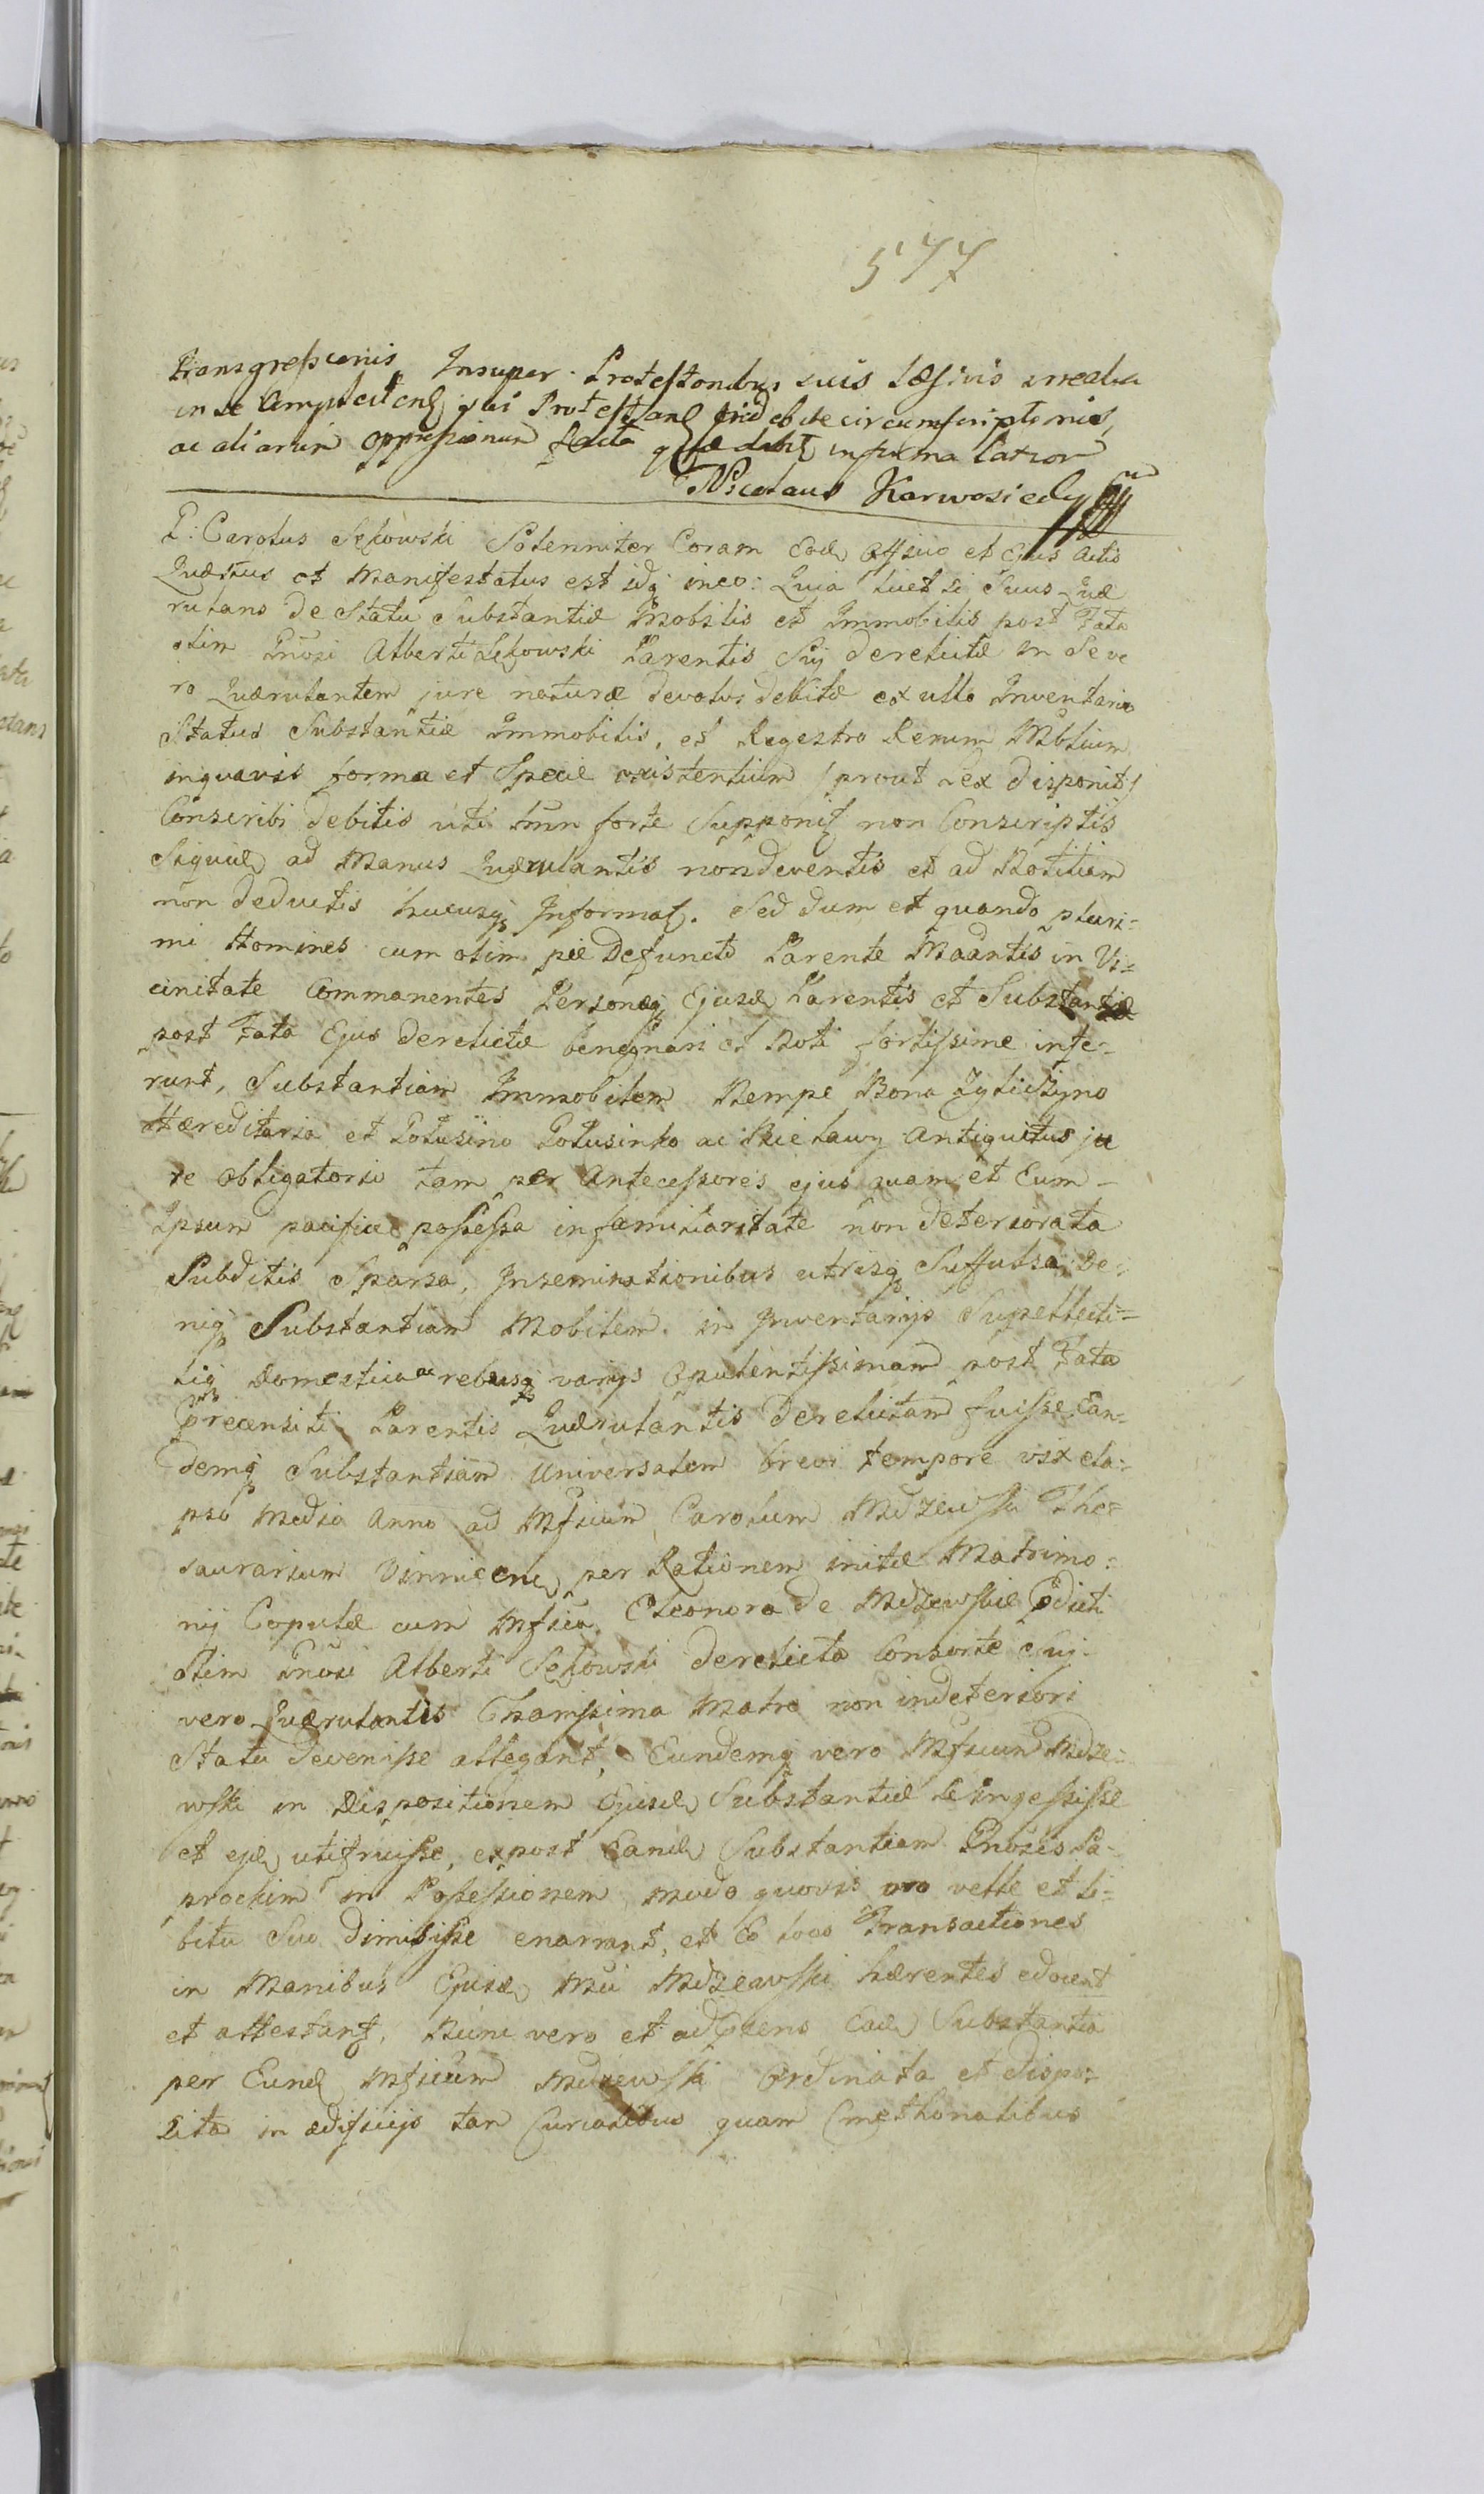 577
transgressionis, Insuper Protestonibus suis
in se Amplectens qui Protestans circumscriptionis,
ac aliarum oppressionum facta latior
Nicolaus Karwosiecky
P: Carolus Sękowski Solenniter Coram Eode Officio et Ejus Actis
Quæstus et Manifestatus est idq; ineo: Quia licet is Suus Quæ
rulans de Statu Substantiæ Mobilis et Immobilis post Fata
olim Gnosi Alberti Sękowski Parentis Sui derelictæ in Seve
ro Quærulantem jure naturæ devolvi debitæ ex ullo Inventario
Status Substantiæ Immobilis, et Regestro Rerum Mblium
inquavis forma et Specie existentium /prout Lex disponit/
Conscribi debitis uti forte Supponit non Conscriptis
Siquid ad Manus Quærulantis non deventis et ad Notitiam
non deductis hucusq; Informat. Sed dum et quando pluri=
mi Homines cum olim pie Defuncto Parente Maantis in Vi=
cinitate Commanentes Personæq; Ejusd Parentis et Substantiæ
post Fata Ejus derelictæ benegnari et Noti fortissime infe=
runt, Substantiam Immobilem Nempe Bona
Hæreditaria et Połusino Połusinko ac antiquitus ju
re obligatorio tam per Antecessores ejus quam et Eum=
Ipsum pacifice possessa infamiliaritate non deteriorata
Subditis Sparsa, Inseminationibus utrisq; Suffulsa, De=
niq; Substantiam Mobilem in Inventarijs Supellecti=
liq; domestica ac rebusq; varijs Opulentissimam post Fata
præcensiti Parentis Quærulantis derelictam fuisse, Ean=
demq; Substantiam Universalem brevi tempore vix ela=
pso Medio Anno ad Mficum Carolum Mdzewski The=
saurarium per Rationem initæ Matrimo=
nij Copulæ cum Mfica Eleonora de Mdzewskie Pdicti
Olim Gnosi Alberti Sękowski derelicta Consorte Sui
vero Quærulantis Charissima Matre non indeteriori
Statu devenisse allegant, Eundemq; vero Mficum Mdze=
wski in Dispositionem Ejusd Substantiæ se ingessisse
et utifruisse, expost Eand Substantiam Gnosis Pa=
prockim in Possessionem modo quovis pro velle et li=
bitu Suo dimisisse enarrant, et Eo loco Transactiones
in Manibus Ejusd Mci Mdzewski hærentes edocent
et attestant, Nunc vero et adpræns Ead Substantia
per Eund Mficum Mdzewski Ordinata et dispo=
sita in ædificijs tam Curialibus quam Cmethonalibus